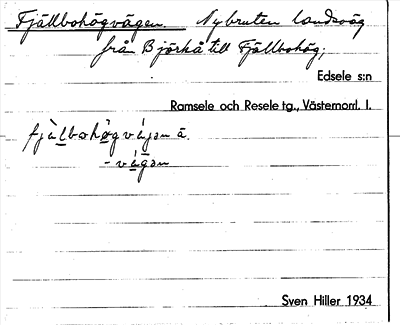 Fjällbohögvägen. Nybruten landsväg
från Björkå till Fjällbohög;
Edsele s:n
Ramsele och Resele tg., Västernorrl. l.
fjälbohögvägən ä.
-vägən
Sven Hiller 1934